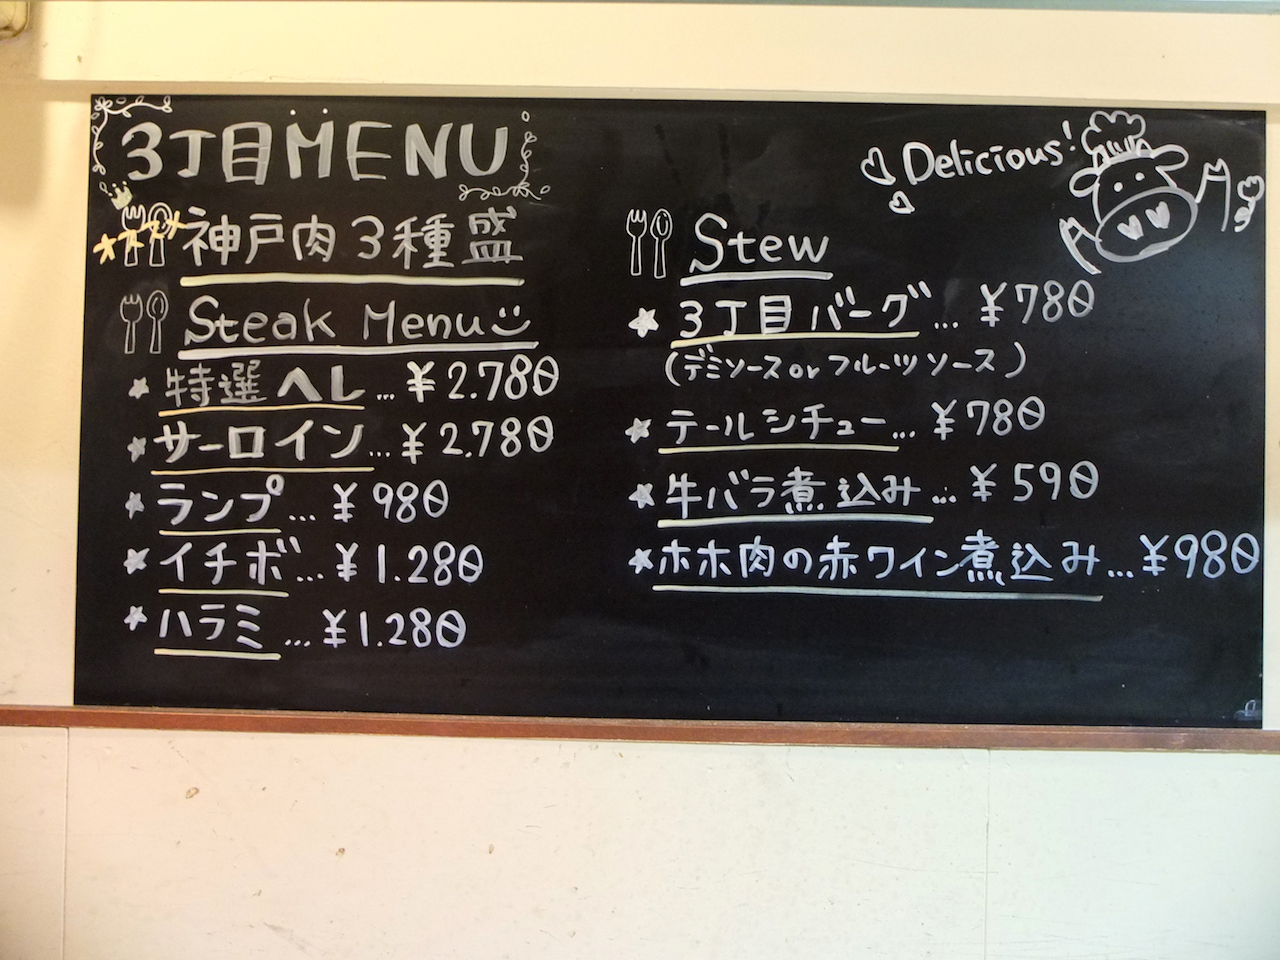 3丁目MENU
オススメ 神戸肉3種盛
Steak Menu
★特選ヘレ…¥2.780
★サーロイン…¥2.780
★ランプ…¥980
★イチボ…¥1.280
★ハラミ…¥1.280
Delicious!
Stew
★3丁目バーグ…¥780
(デミソースorフルーツソース)
★テールシチュー…¥780
★牛バラ煮込み…¥590
★ホホ肉の赤ワイン煮込み…¥980